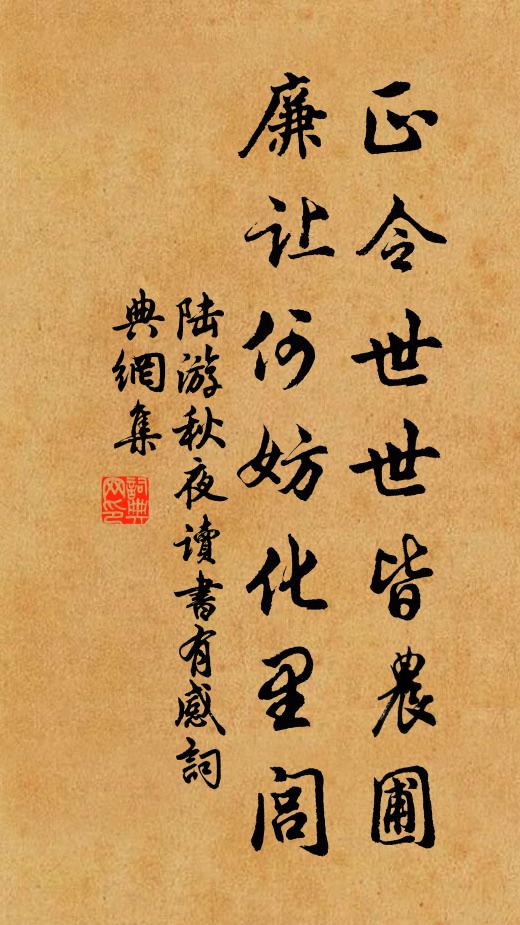 正令世世皆農圃
廉让何妨化里闾
陆游秋夜讀書有感詞
典網集
詞典网印